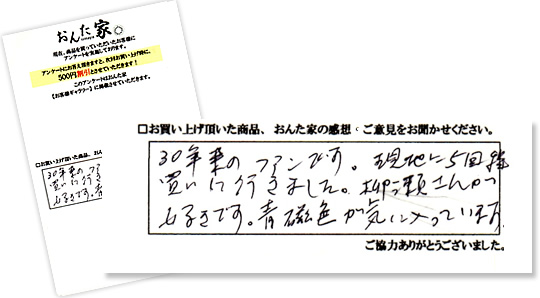 おんた家
現在、商品を買っていただいたお客様に
アンケートを実施しております。
アンケートにお答え頂きますと、次回お買い上げ時に、
500円割引とさせていただきます!
このアンケートはおんた家
【お客様ギャラリー】に掲載させていただきます。
□お買い上げ頂いた商品、おん
30年来のファ
買いに行きま
好きです。青
□お買い上げ頂いた商品、おんた家の感想・ご意見をお聞かせください。
30年来のファンです。現地に5回程
買いに行きました。柳瀬さんが
好きです。青磁色が気に入っています
ご協力ありがとうございました。